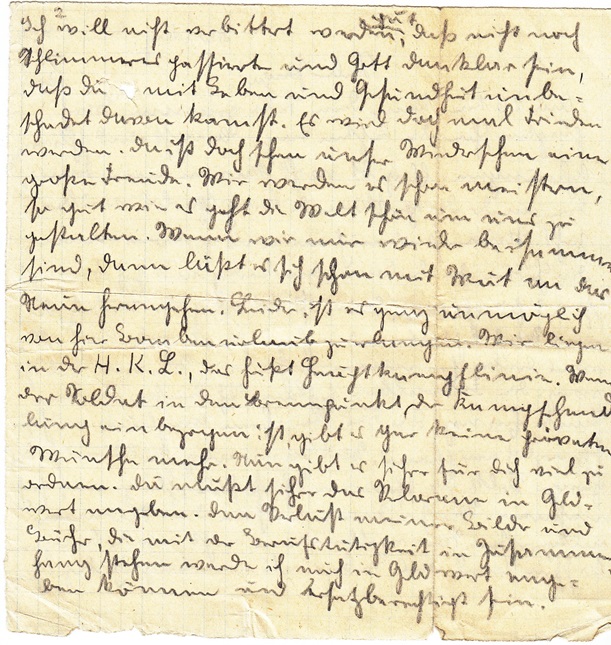 Ich will nicht verbittert werden, daß nicht noch
Schlimmeres passierte und Gott dankbar sein,
daß du mit Leben und Gesundheit unbe-
schadet davon kamst. Es wird doch mal Frieden
werden. da ist doch schon unser Wiedersehen eine
große Freude. Wir werden es schon meistern,
so gut wie es geht die Welt schön um uns zu
gestalten. Wenn wir nur wieder beisammen
sind, dann läßt es sich schon mit Mut an das
Neue herangehen. Leider ist es ganz unmöglich
von hier Bombenurlaub zu erlangen. Wir liegen
in der H. K. L., das heißt Hauptkampflinie. Wenn
der Soldat in den Brennpunkt der Kampfhand
lung einbezogen ist, gibt es gar keine privaten
Wünsche mehr. Nun gibt es sicher für dich viel zu
ordnen. du mußt sicher das Verlorene in Geld-
wert angeben. den Verlust meiner Bilder und
Bücher, die mit der Berufstätigkeit in Zusammen
hang stehen werde ich auch in Geldwert ange-
ben können und ersatzberechtigt sein.